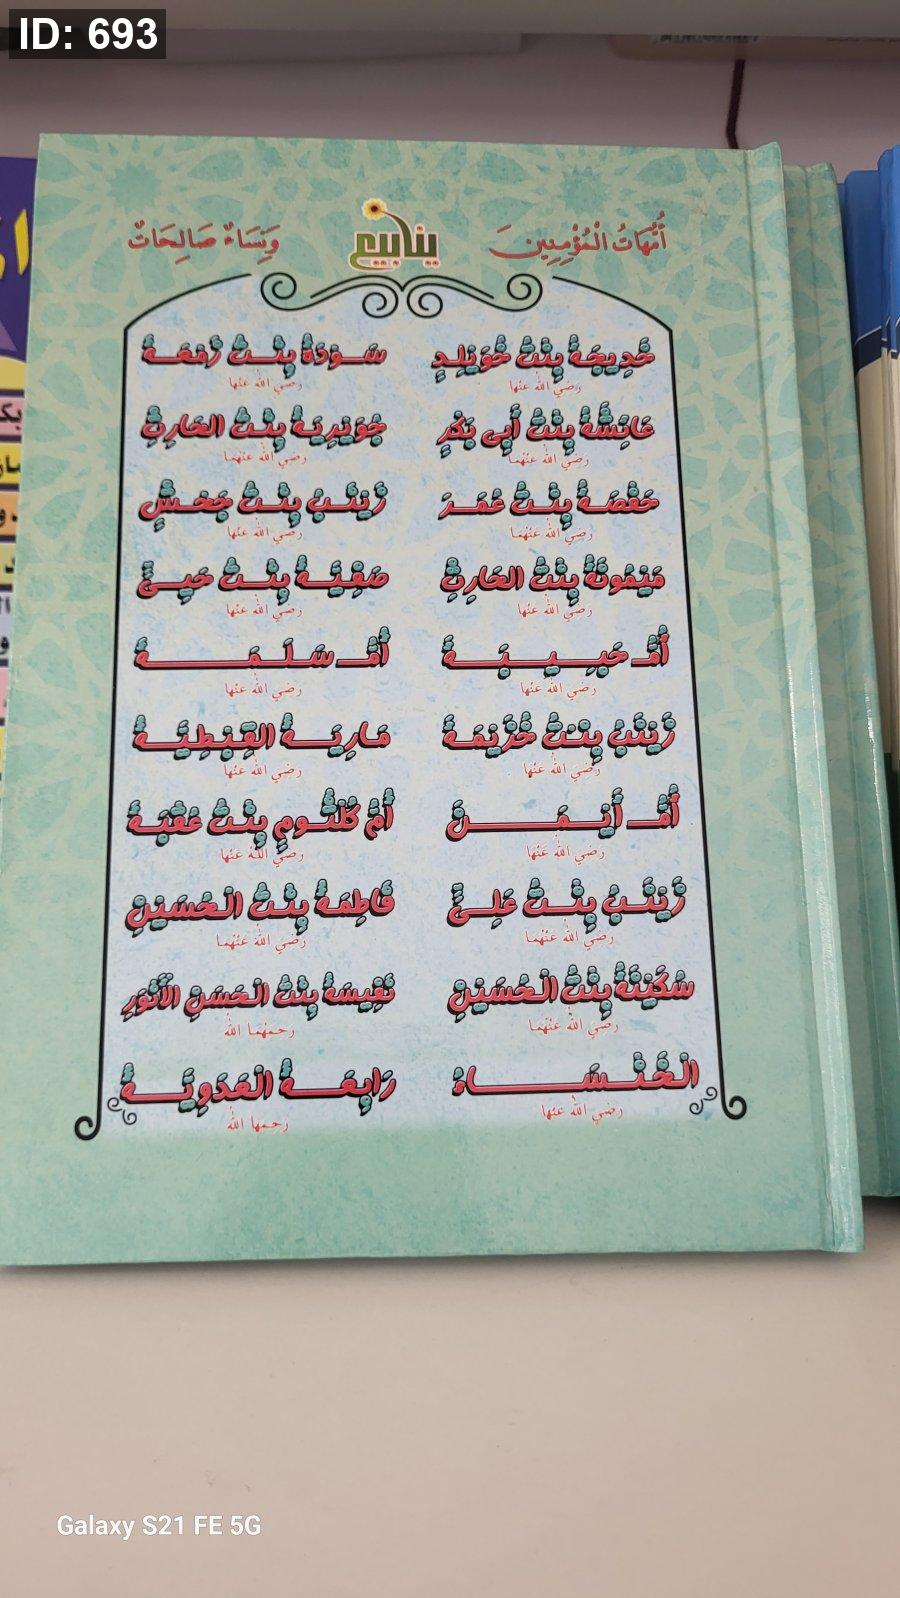 ID: 693
أُمَّهَاتُ الْمُؤْمِنِينَ
ينابيع
وَنِسَاءٌ صَالِحَاتٌ
خَدِيجَةُ بِنْتُ خُوَيْلِدٍ
رضي الله عنها
سَوْدَةُ بِنْتُ زَمْعَةَ
رضي الله عنها
عَائِشَةُ بِنْتُ أَبِي بَكْرٍ
رضي الله عنهما
جُوَيْرِيَةُ بِنْتُ الحَارِثِ
رضي الله عنهما
حَفْصَةُ بِنْتُ عُمَرَ
رضي الله عنهما
زَيْنَبُ بِنْتُ جَحْشٍ
رضي الله عنها
مَيْمُونَةُ بِنْتُ الحَارِثِ
رضي الله عنها
صَفِيَّةُ بِنْتُ حُيَيٍّ
رضي الله عنها
أُمُّ حَبِيبَةَ
رضي الله عنها
أُمُّ سَلَمَةَ
رضي الله عنها
زَيْنَبُ بِنْتُ خُزَيْمَةَ
رضي الله عنها
مَارِيَةُ القِبْطِيَّةُ
رضي الله عنها
أُمُّ أَيْمَنَ
رضي الله عنها
أُمُّ كُلْثُومٍ بِنْتُ عُقْبَةَ
رضي الله عنها
زَيْنَبُ بِنْتُ عَلِيٍّ
رضي الله عنهما
فَاطِمَةُ بِنْتُ الْحُسَيْنِ
رضي الله عنهما
سُكَيْنَةُ بِنْتُ الْحُسَيْنِ
رضي الله عنهما
نَفِيسَةُ بِنْتُ الْحَسَنِ الْأَنْوَرِ
رحمهما الله
الْخَنْسَاءُ
رضي الله عنها
رَابِعَةُ الْعَدَوِيَّةُ
رحمها الله
Galaxy S21 FE 5G